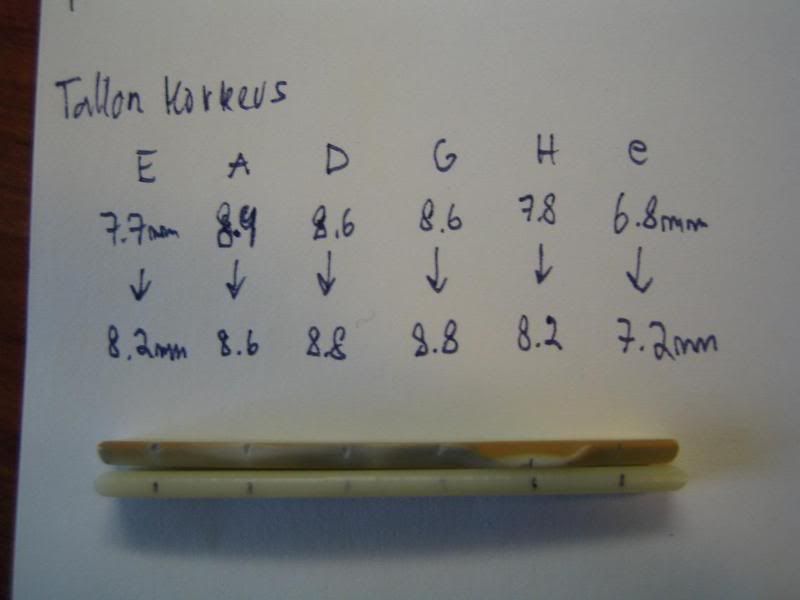 Tallon Korkeus
E A D G H e
7.7mm 8.4 8.6 8.6 7.8 6.8mm
↓ ↓ ↓ ↓ ↓ ↓
8.2mm 8.6 8.8 8.8 8.2 7.2mm